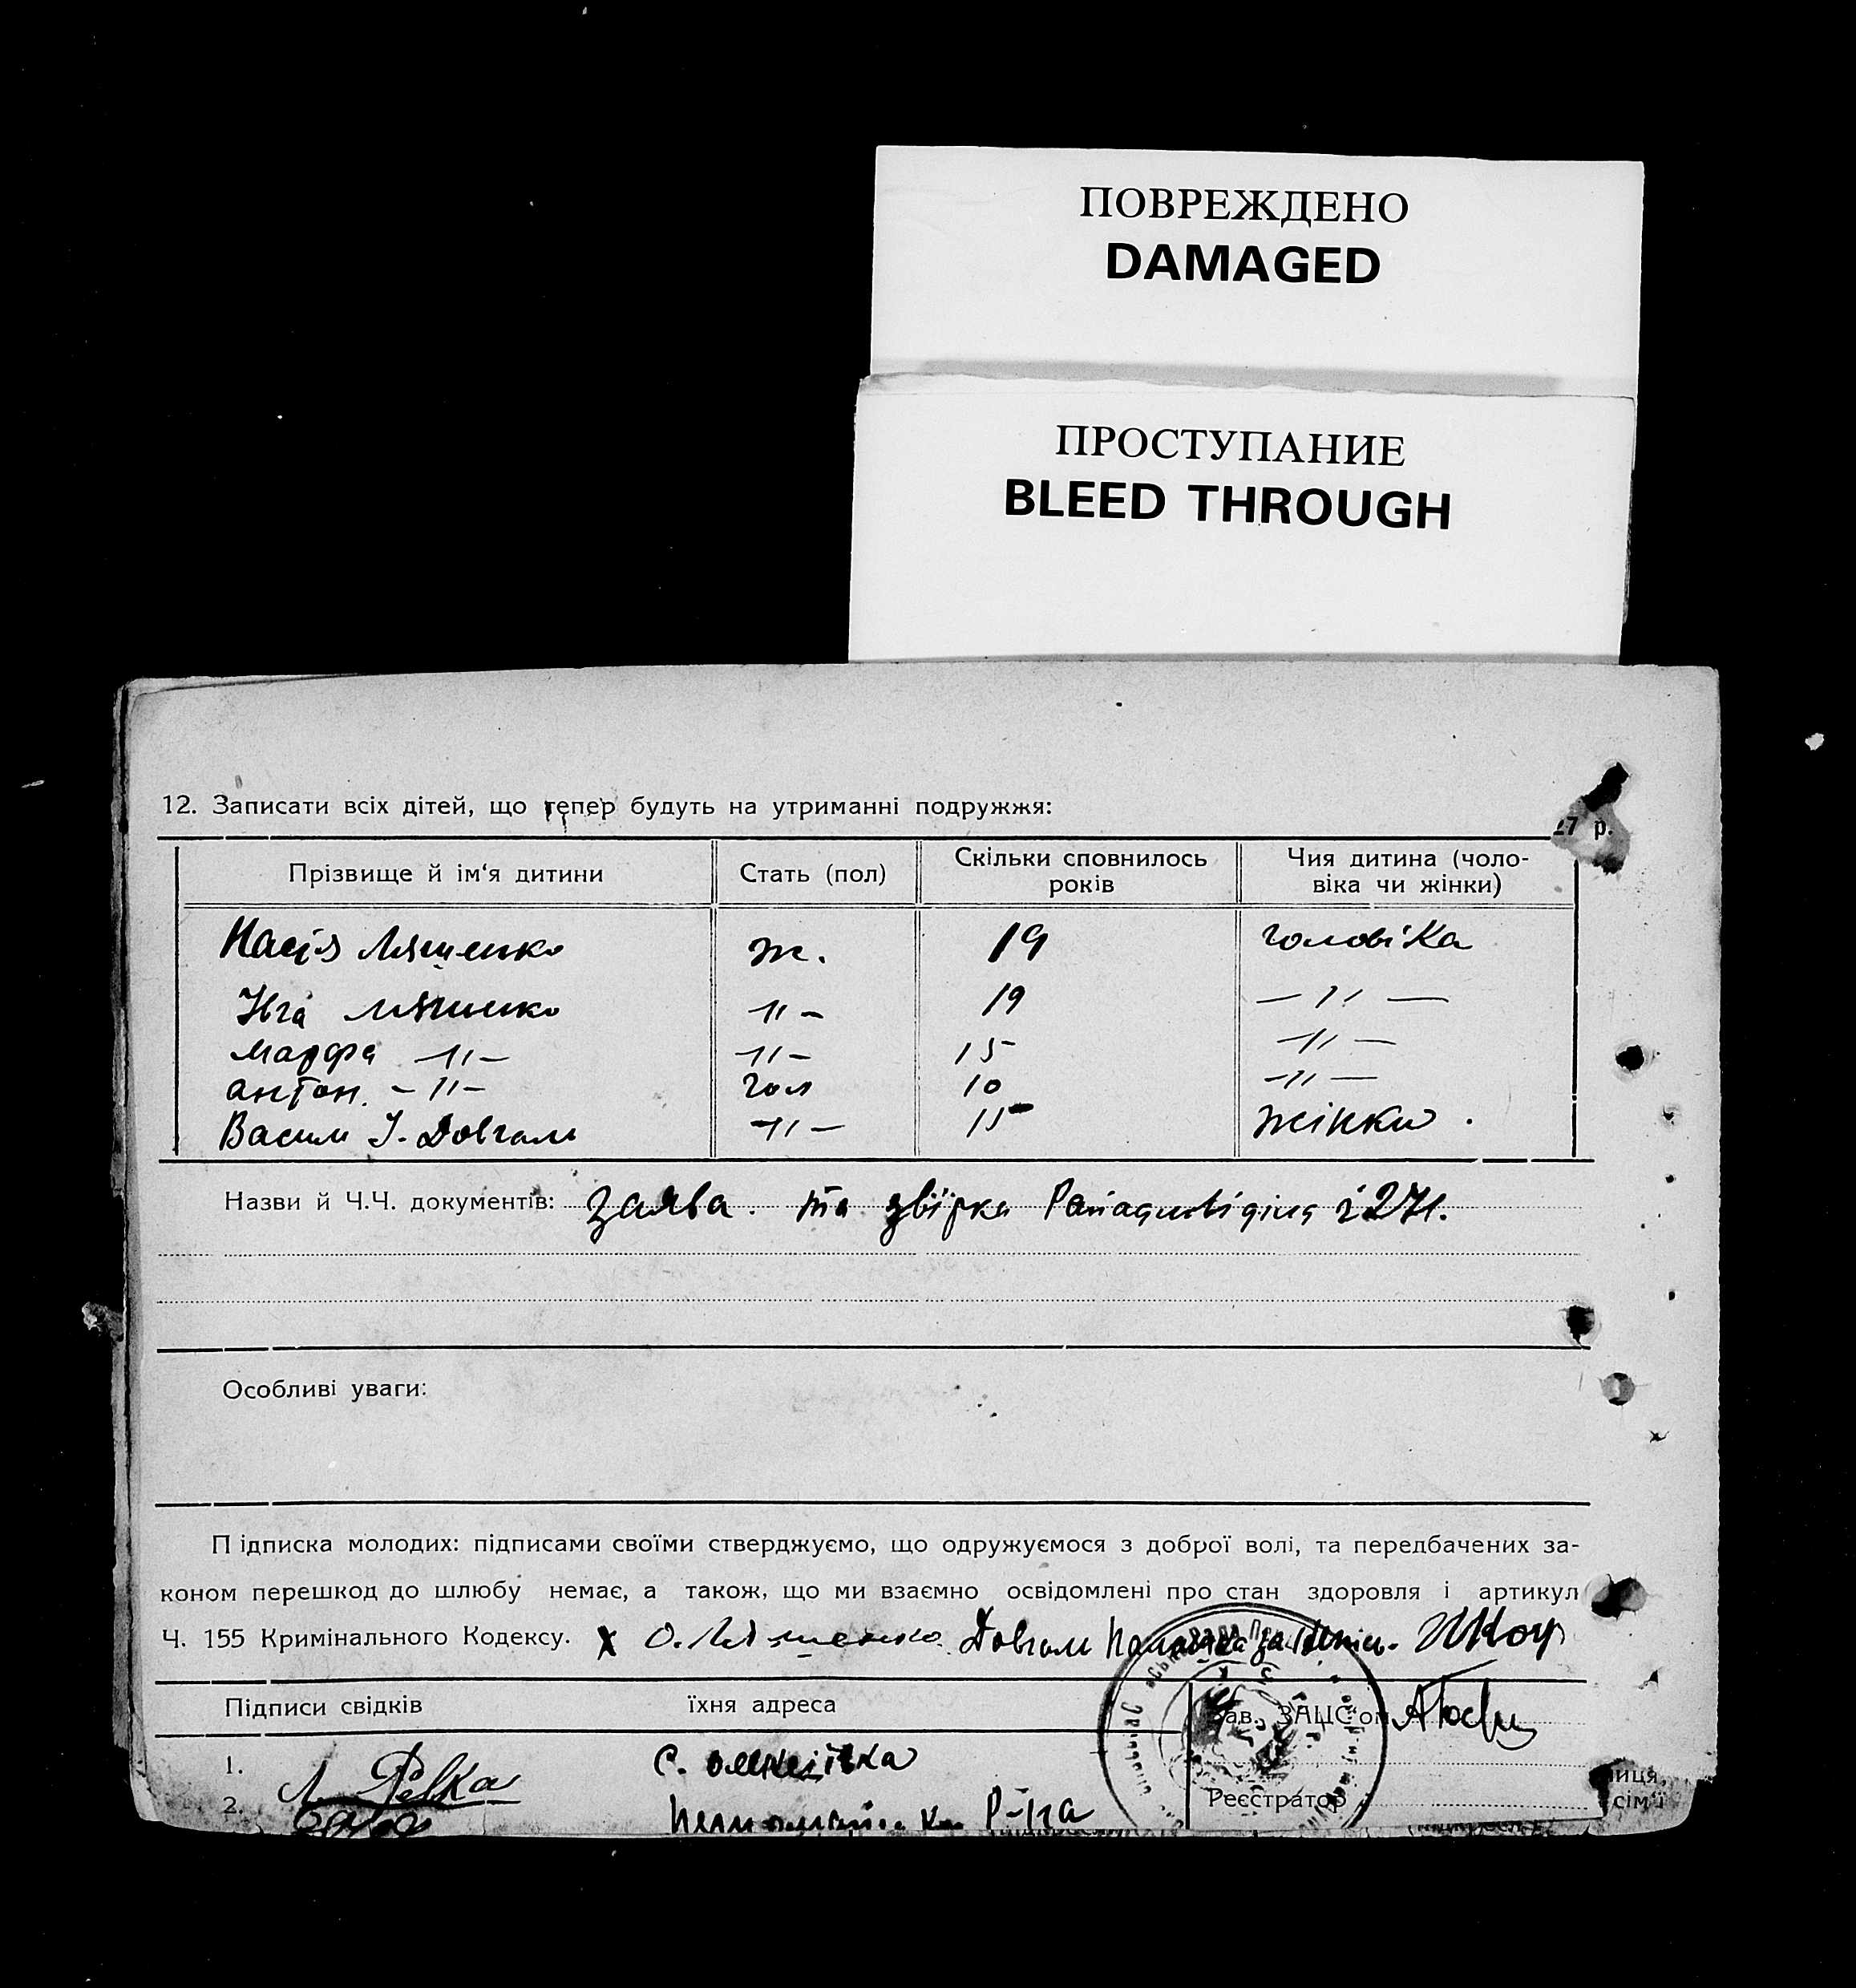 ПОВРЕЖДЕНО
DAMAGED
ПРОСТУПАНИЕ
BLEED THROUGH
12. Записати всіх дітей, що тепер будуть на утриманні подружжя:
27 р.
Прізвище й ім'я дитини Стать (пол) Скільки сповнилось років Чия дитина (чоловіка чи жінки)
Ляшенко ж. 19 чоловіка
Ляшенко -〃- 19 -〃-
Марфа -〃- -〃- 15 -〃-
Антон. -〃- чол 10 -〃-
Васил І. Довгал -〃- 15 жінки.
Назви й Ч.Ч. документів: Заява. та звірка
Особливі уваги:
Підписка молодих: підписами своїми стверджуємо, що одружуємося з доброї волі, та передбачених за-
коном перешкод до шлюбу немає, а також, що ми взаємно освідомлені про стан здоров'я і артикул
Ч. 155 Кримінального Кодексу. х О. Ляшенко Довгал
Підписи свідків їхня адреса Зав. ЗАЦС'ом
1. с.
2. Р-на Реєстратор
иця,
сім'ї